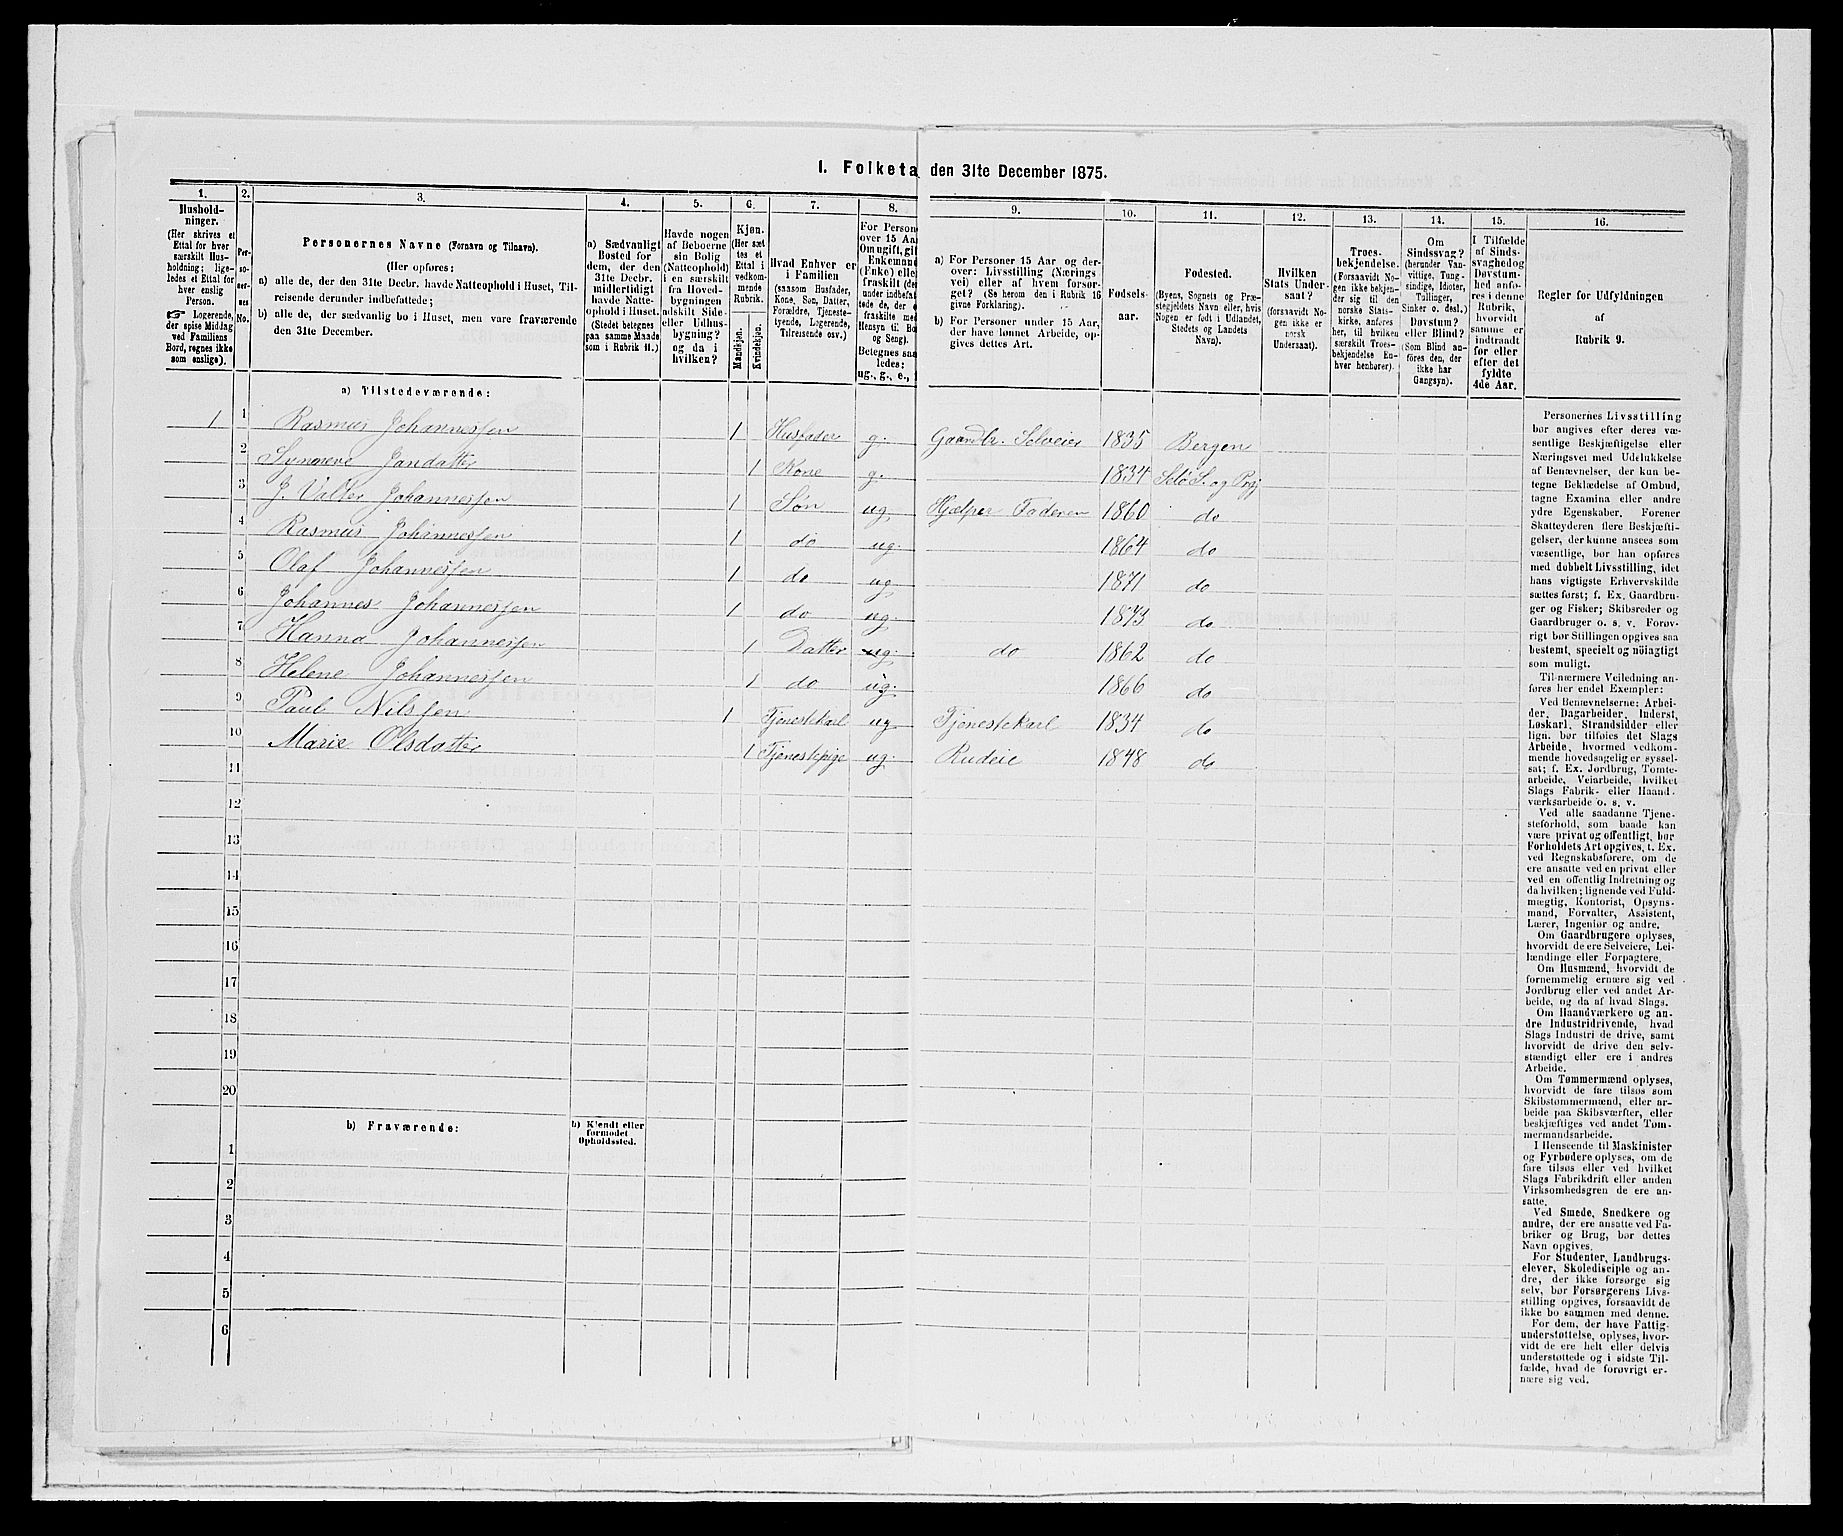 I. Folketa den 31te December 1875.
1. 2. 3. 4. 5. 6. 7. 8. 9. 10. 11. 12. 13. 14. 15. 16.
Hushold-
ninger.
(Her skrives et
Ettal for hver
særskilt Hus-
holdning; lige-
ledes et Ettal for
hver enslig
Person.
☞ Logerende,
der spise Middag
ved Familiens
Bord, regnes ikke
som enslige).
Per-
so-
ner-
nes
No.
Personernes Navne (Fornavn og Tilnavn).
(Her opføres:
a) alle de, der den 31te Decbr. havde Natteophold i Huset, Til-
reisende derunder indbefattede;
b) alle de, der sædvanlig bo i Huset, men vare fraværende
den 31te December.
a) Sædvanligt
Bosted for
dem, der den
31te Decbr.
midlertidigt
havde Natte-
ophold i Huset.
(Stedet betegnes
paa samme Maade
som i Rubrik 11.)
Havde nogen
af Beboerne
sin Bolig
(Natteophold)
i en særskilt
fra Hoved-
bygningen
adskilt Side-
eller Udhus-
bygning?
og da i
hvilken?
Kjøn.
(Her sæt-
tes et
Ettal i
vedkom-
mende
Rubrik.
Mandkjøn.
Kvindekjøn.
Hvad Enhver er
i Familien
(saasom Husfader,
Kone, Søn, Datter,
Forældre, Tjeneste-
tyende, Logerende,
Tilreisende osv.)
For Person
over 15 Aa
Om ugift, gif
Enkemand
(Enke) elle
fraskilt (de
under indbefat
tede de, der e
fraskilte me
Hensyn til Bo
og Seng).
Betegnes saa
ledes:
ug., g., e., f
a) For Personer 15 Aar og der-
over: Livsstilling (Nærings
vei) eller af hvem forsør-
get? (Se herom den i Rubrik 16
givne Forklaring).
b) For Personer under 15 Aar,
der have lønnet Arbeide, op-
gives dettes Art.
Fødsels-
aar.
Fødested.
(Byens, Sognets og Præ-
stegjeldets Navn eller, hvis
Nogen er født i Udlandet,
Stedets og Landets
Navn).
Hvilken
Stats Under-
saat?
(forsaavidt No-
gen ikke er
norsk
Undersaat).
Troes-
bekjendelse.
(Forsaavidt No-
gen ikke bekjen-
der sig til den
norske Stats-
kirke, anføres
her, til hvilken
særskilt Troes-
bekjendelse En-
hver henhører).
Om
Sindssvag?
(herunder Van-
vittige, Tung-
sindige, Idioter,
Tullinger,
Sinker o. desl.)
Døvstum?
eller Blind?
(Som Blind an-
føres den, der
ikke har
Gangsyn).
I Tilfælde
af Sinds-
svaghed og
Døvstum-
hed anfø-
res i denne
Rubrik,
hvorvidt
samme er
indtraadt
før eller
efter det
fyldte
4de Aar.
Regler for Udfyldningen
af
Rubrik 9.
a) Tilstedeværende:
1 1 Rasmus Johannessen 1 Husfader g. Gaardbr. Selveier 1835 Bergen
2 Synneve Jansdatter 1 Kone g. 1834 Selø S. og Prgj
3 J. Valter Johannessen 1 Søn ug. Hjælper Faderen 1860 do
4 Rasmus Johannessen 1 do ug. 1864 do
5 Olaf Johannessen 1 do ug 1871 do
6 Johannes Johannessen 1 do ug. 1873 do
7 Hanna Johannessen 1 Datter ug. do 1862 do
8 Helene Johannessen 1 do ug. 1866 do
9 Paul Nilssen 1 Tjenestekarl ug Tjenestekarl 1834 do
10 Marie Olsdatter 1 Tjenestepige ug. Budeie 1848 do
11
12
13
14
15
16
17
18
19
20
b) Fraværende:
b) Kjendt eller
formodet
Opholdssted.
1
2
3
4
5
6
Personernes Livsstilling
bør angives efter deres væ-
sentlige Beskjæftigelse eller
Næringsvei med Udelukkelse
af Benævnelser, der kun be-
tegne Beklædelse af Ombud,
tagne Examina eller andre
ydre Egenskaber. Forener
Skatteyderen flere Beskjæfti-
gelser, der kunne ansees som
væsentlige, bør han opføres
med dobbelt Livsstilling, idet
hans vigtigste Erhvervskilde
sættes først; f. Ex. Gaardbru-
ger og Fisker; Skibsreder og
Gaardbruger o. s. v. Forøv-
rigt bør Stillingen opgives saa
bestemt, specielt og nöiagtigt
som muligt.
Til nærmere Veiledning an-
føres her endel Exempler:
Ved Benævnelserne: Arbei-
der, Dagarbeider, Inderst,
Løskarl, Strandsidder eller
lign. bør tilføies det Slags
Arbeide, hvormed vedkom-
mende hovedsagelig er syssel-
sat; f. Ex. Jordbrug, Tomte-
arbeide, Veiarbeide, hvilket
Slags Fabrik- eller Haand-
værksarbeide o. s. v.
Ved alle saadanne Tjene-
steforhold, som baade kan
være privat og offentligt, bør
Forholdets Art opgives, t. Ex.
ved Regnskabsførere, om de
ere ansatte ved en privat eller
ved en offentlig Indretning og
da hvilken; lignende ved Fuld-
mægtig, Kontorist, Opsyns-
mand, Forvalter, Assistent,
Lærer, Ingeniør og andre.
Om Gaardbrugere oplyses,
hvorvidt de ere Selveiere, Lei-
lændinge eller Forpagtere.
Om Husmænd, hvorvidt de
fornemmelig ernære sig ved
Jordbrug eller ved andet Ar-
beide, og da af hvad Slags.
Om Haandværkere og an-
dre Industridrivende, hvad
Slags Industri de drive, samt
hvorvidt de drive den selv-
stændigt eller ere i andres
Arbeide.
Om Tømmermænd oplyses,
hvorvidt de fare tilsøs som
Skibstømmermænd, eller ar-
beide paa Skibsværfter, eller
beskjæftiges ved andet Tøm-
mermandsarbeide.
I Henseende til Maskinister
og Fyrbødere oplyses, om de
fare tilsøs eller ved hvilket
Slags Fabrikdrift eller anden
Virksomhedsgren de ere an-
satte.
Ved Smede, Snedkere og
andre, der ere ansatte ved Fa-
briker og Brug, bør dettes
Navn opgives.
For Studenter, Landbrugs-
elever, Skoledisciple og an-
dre, der ikke forsørge sig
selv, bør Forsørgerens Livs-
stilling opgives, forsaavidt de
ikke bo sammen med denne.
For dem, der have Fattig-
understøttelse, oplyses, hvor-
vidt de ere helt eller delvis
understøttede og i sidste Til-
fælde, hvad de forøvrigt er-
nære sig ved.